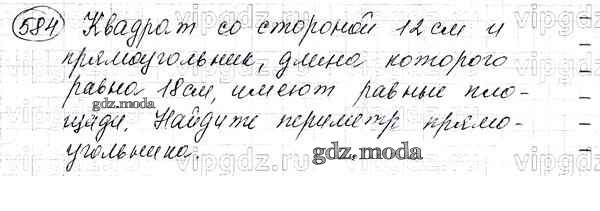 584 Квадрат со стороной 12 см и
прямоугольник, длина которого
равна 18 см, имеют равные пло-
gdz.moda
щади. Найдите периметр прямо-
угольника.
gdz.moda
vipgdz.ru
vipgdz.ru
vipgdz.ru
vipgdz